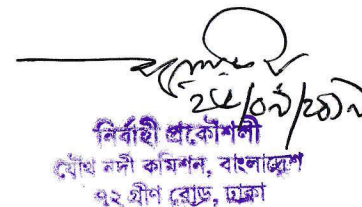 ২৫/০৯/২০১৯
নির্বাহী প্রকৌশলী
যৌথ নদী কমিশন, বাংলাদেশ
৭২ গ্রীণ রোড, ঢাকা